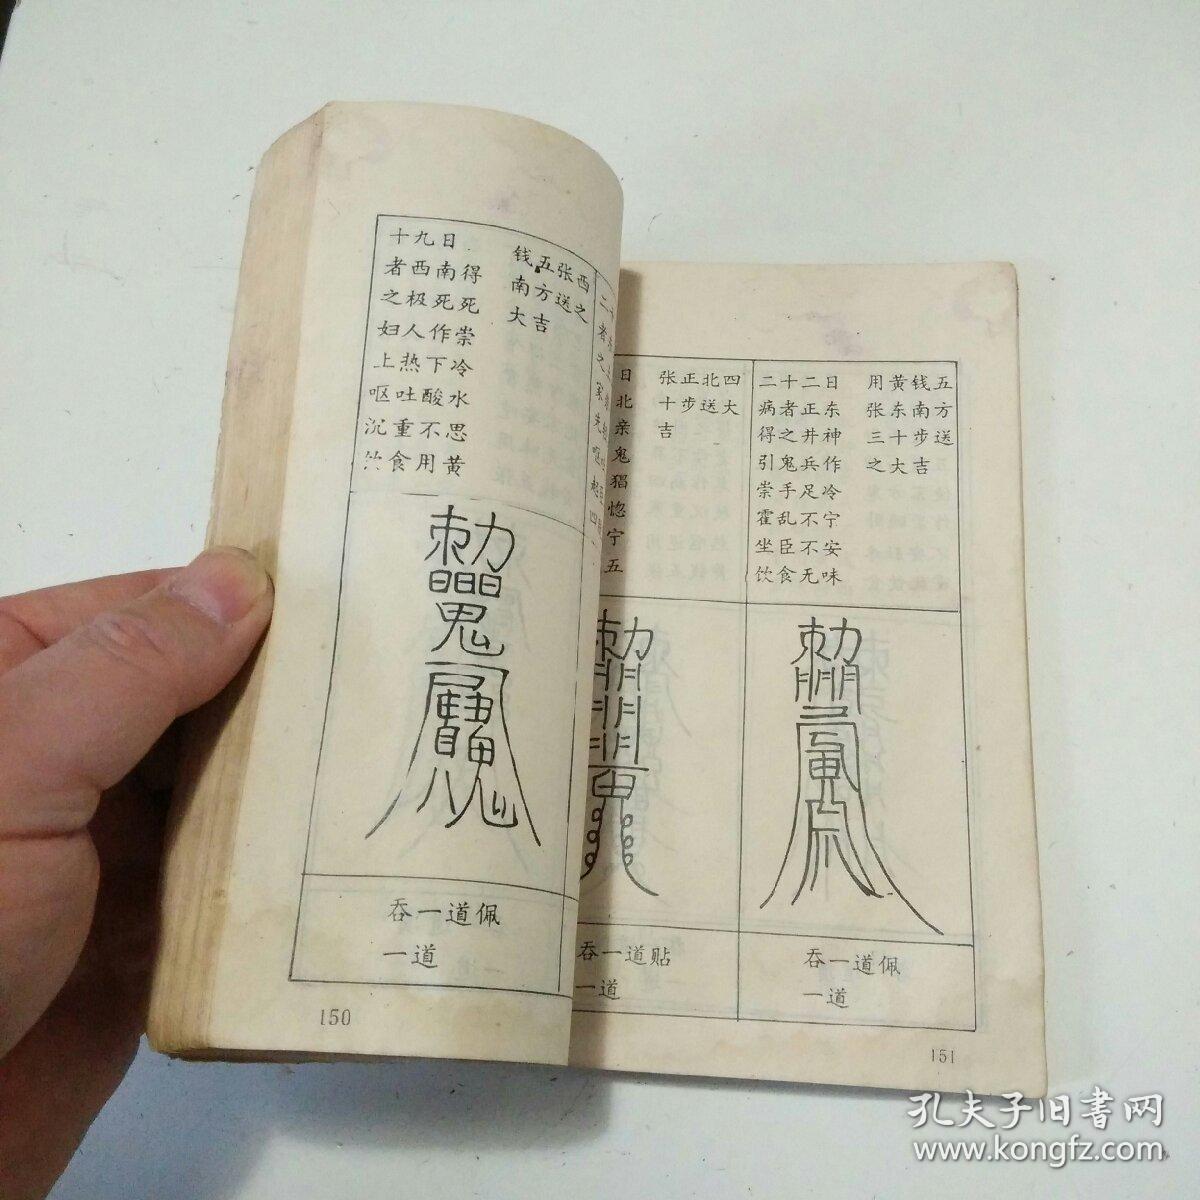 十九日
者西南得
之极死死
妇人作崇
上热下冷
呕吐酸水
沉重不思
饮食用黄
钱五张西
南方送之
大吉
敕
吞一道佩
一道
150
日
北
亲
鬼
猖
惚
宁
五
张正北四
十步送大
吉
敕
吞一道贴
一道
二十二日
病者正东
得之井神
引鬼兵作
崇手足冷
霍乱不宁
坐臣不安
饮食无味
用黄钱五
张东南方
三十步送
之大吉
敕
吞一道佩
一道
151
孔夫子旧书网
www.kongfz.com